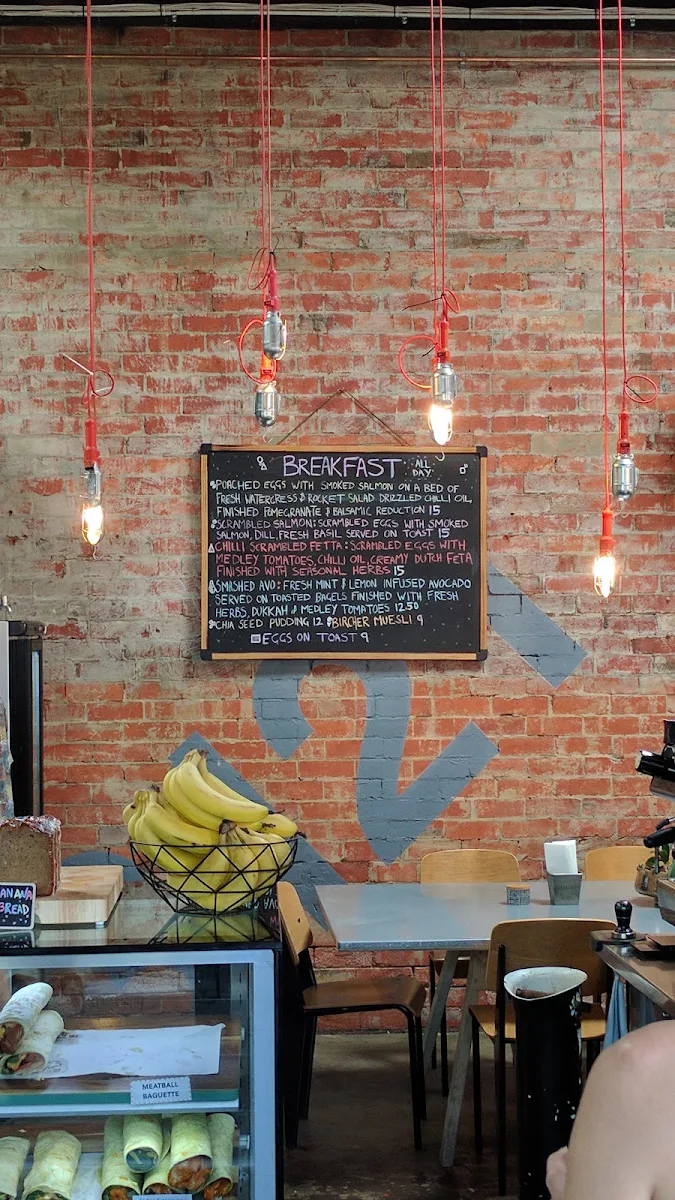 BREAKFAST ALL DAY
POACHED EGGS WITH SMOKED SALMON ON A BED OF
FRESH WATERCRESS & ROCKET SALAD DRIZZLED CHILLI OIL,
FINISHED POMEGRANATE & BALSAMIC REDUCTION 15
SCRAMBLED SALMON: SCRAMBLED EGGS WITH SMOKED
SALMON, DILL, FRESH BASIL SERVED ON TOAST 15
CHILLI SCRAMBLED FETTA: SCRAMBLED EGGS WITH
MEDLEY TOMATOES, CHILLI OIL, CREAMY DUTCH FETA
FINISHED WITH SEASONAL HERBS 15
SMASHED AVO: FRESH MINT & LEMON INFUSED AVOCADO
SERVED ON TOASTED BAGELS FINISHED WITH FRESH
HERBS, DUKKAH & MEDLEY TOMATOES 12.50
CHIA SEED PUDDING 12 BIRCHER MUESLI 9
EGGS ON TOAST 9
2
ANANA
BREAD
MEATBALL
BAGUETTE